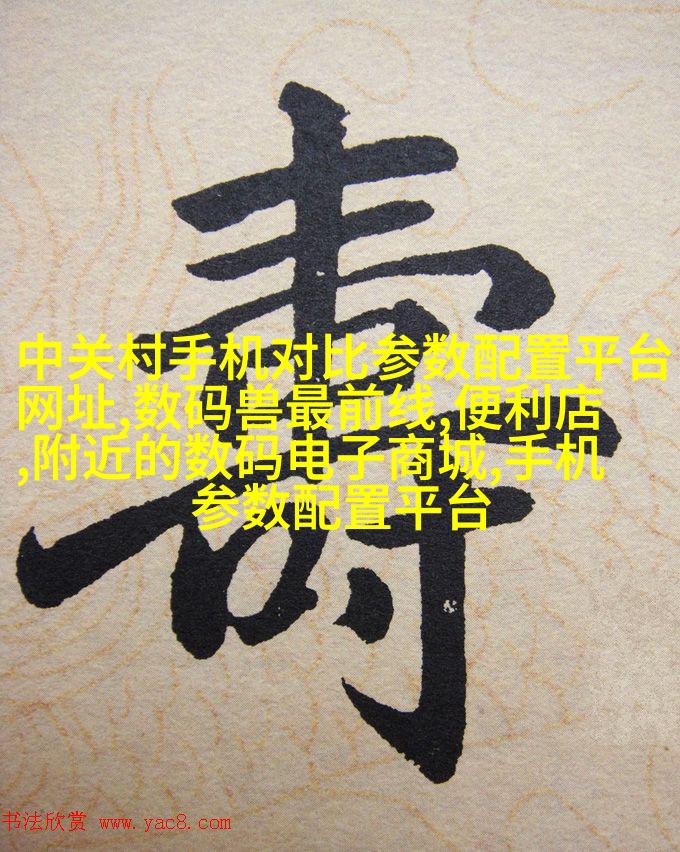 壽
中关村手机对比参数配置平台
网址,数码兽最前线,便利店
,附近的数码电子商城,手机
参数配置平台
书法欣赏 www.yac8.com